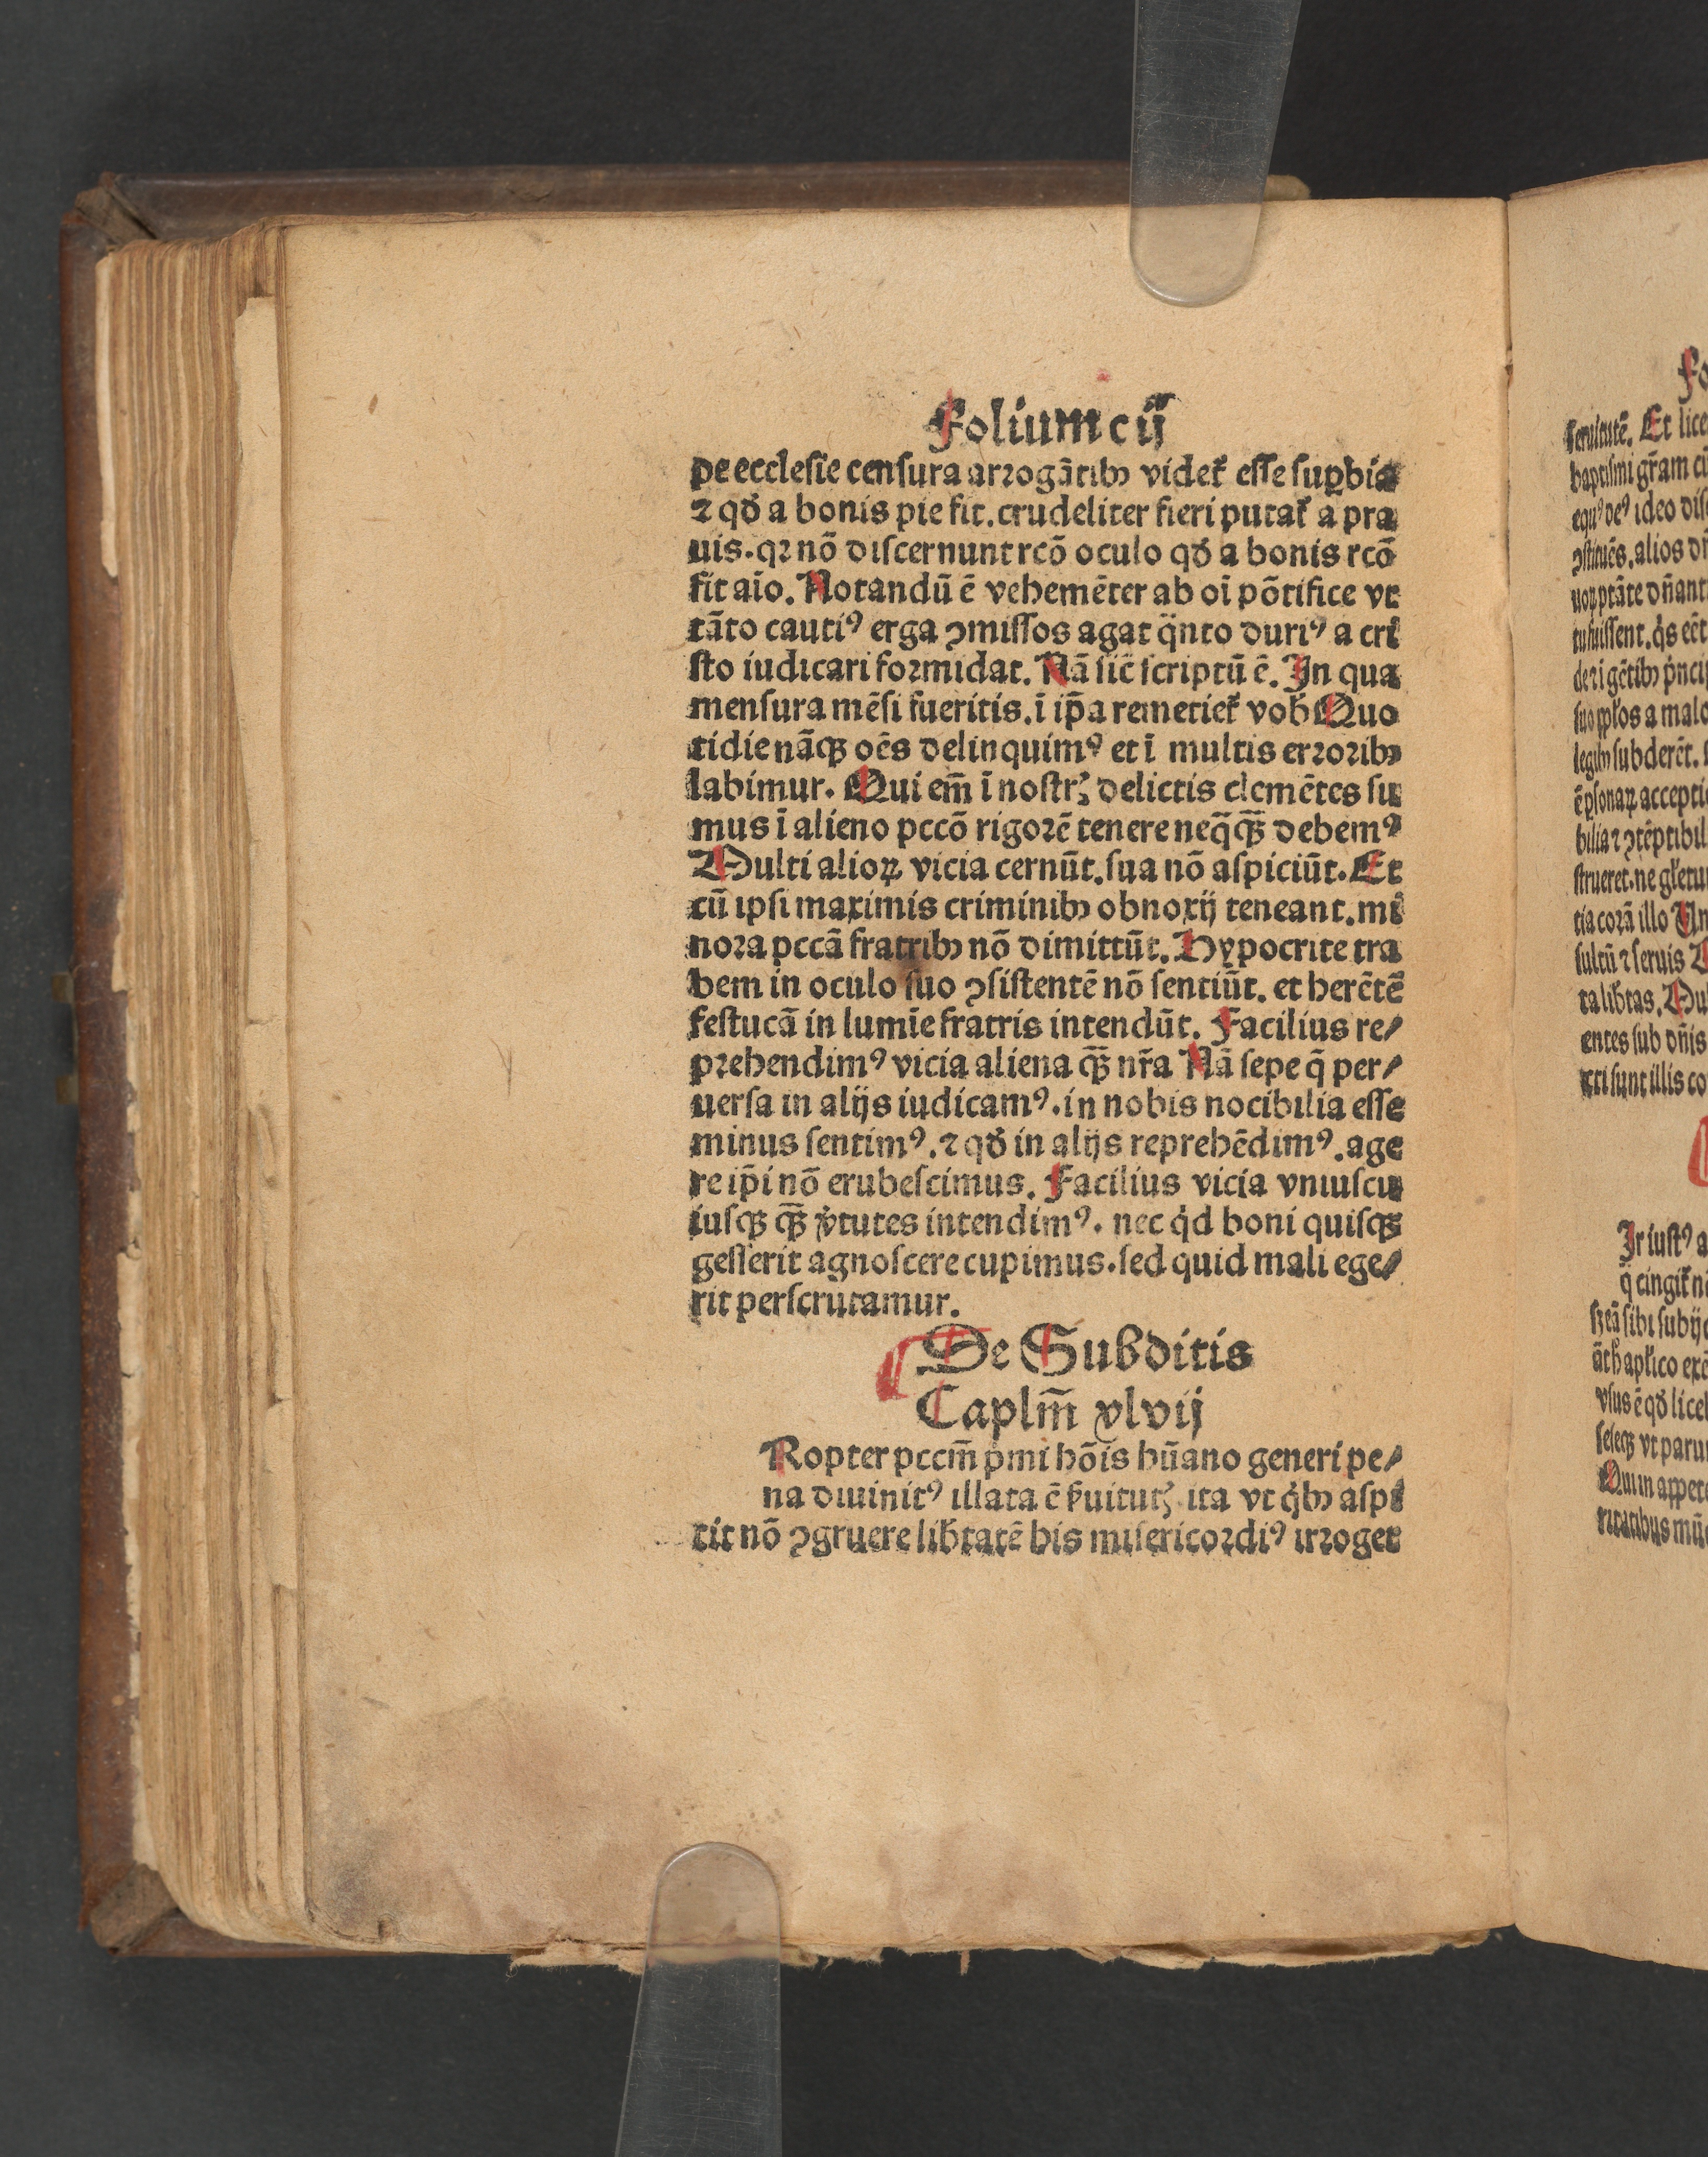 Folium cij
pe ecclesie censura arrogātibꝰ videt̃ esse supbia
⁊ qđ a bonis pie fit. crudeliter fieri putat̃ a pra
uis. qꝛ nō discernunt rcō oculo qđ a bonis rcō
fit aīo. Notandū ē vehemēter ab oī pōtifice vt
tāto cautiꝰ erga ꝯmissos agat q̃nto duriꝰ a cri
sto iudicari formidat. Nā sic̄ scriptū ē. In qua
mensura mēsi fueritis. ī ip̄a remetiet̃ vob̃ Quo
tidie nāqꝫ oēs delinquimꝰ et ī multis erroribꝰ
labimur. Qui em̄ ī nostrꝭ delictis clemētes su
mus ī alieno pccō rigorē tenere neq̄qꝫ̄ debemꝰ
Multi alioꝝ vicia cernūt. sua nō aspiciūt. Et
cū ipsi maximis criminibꝰ obnoxij teneant. mi
nora pccā fratribꝰ nō dimittūt. Hypocrite tra
bem in oculo suo ꝯsistentē nō sentiūt. et herētē
festucā in lumīe fratris intendūt. Facilius re/
prehendimꝰ vicia aliena qꝫ̄ nr̃a Nā sepe q̄ per/
uersa in alijs iudicamꝰ. in nobis nocibilia esse
minus sentimꝰ. ⁊ qđ in alijs reprehēdimꝰ. age
re ip̄i nō erubescimus. Facilius vicia vniuscu
iusqꝫ qꝫ̄ v̓tutes intendimꝰ. nec qͥd boni quisqꝫ
gesserit agnoscere cupimus. sed quid mali ege/
rit perscrutamur.
De Subditis
Caplm̄ xlvij
Ropter pccm̄ pͥmi hōis hūano generi pe/
na diuinitꝰ illata ē s̓uitutꝭ ita vt qͥbꝰ aspi
cit nō ꝯgruere lib̃tatē his misericordiꝰ irroget
Et lice
baptismi gr̃am cū
ideo dis
alios
tuissent. qͥs
de ⁊ i gētibꝰ pͥncip
a malo
subderēt.
accepti
strueret. ne
tia corā illo Un
sultū ⁊ seruis
ta lib̃tas.
entes sub dn̄is
sunt illis co
Ir iustꝰ a
q̄ cingit̃ ni
sibi subij
vsus ē qđ licet
vt paru
Qui in appete